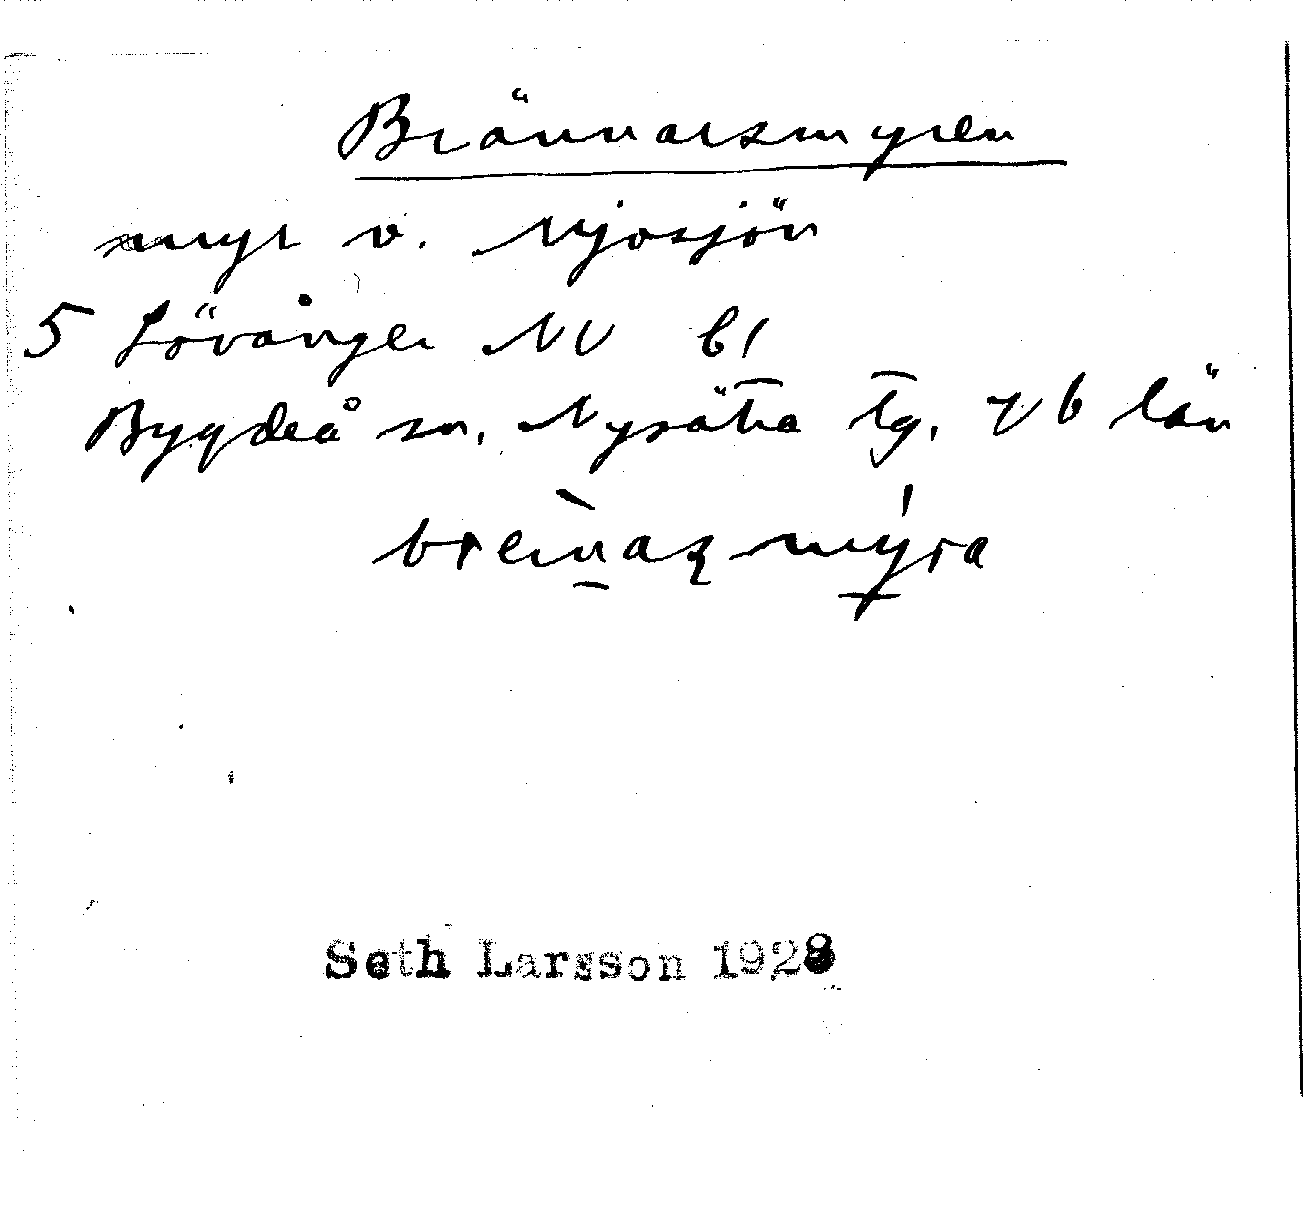 Brännarsmyren
myr v. Nyosjön
5 Lövånger NV bl
Bygdeå sn, Nysätra tg, Vb län
Seth Larsson 1928